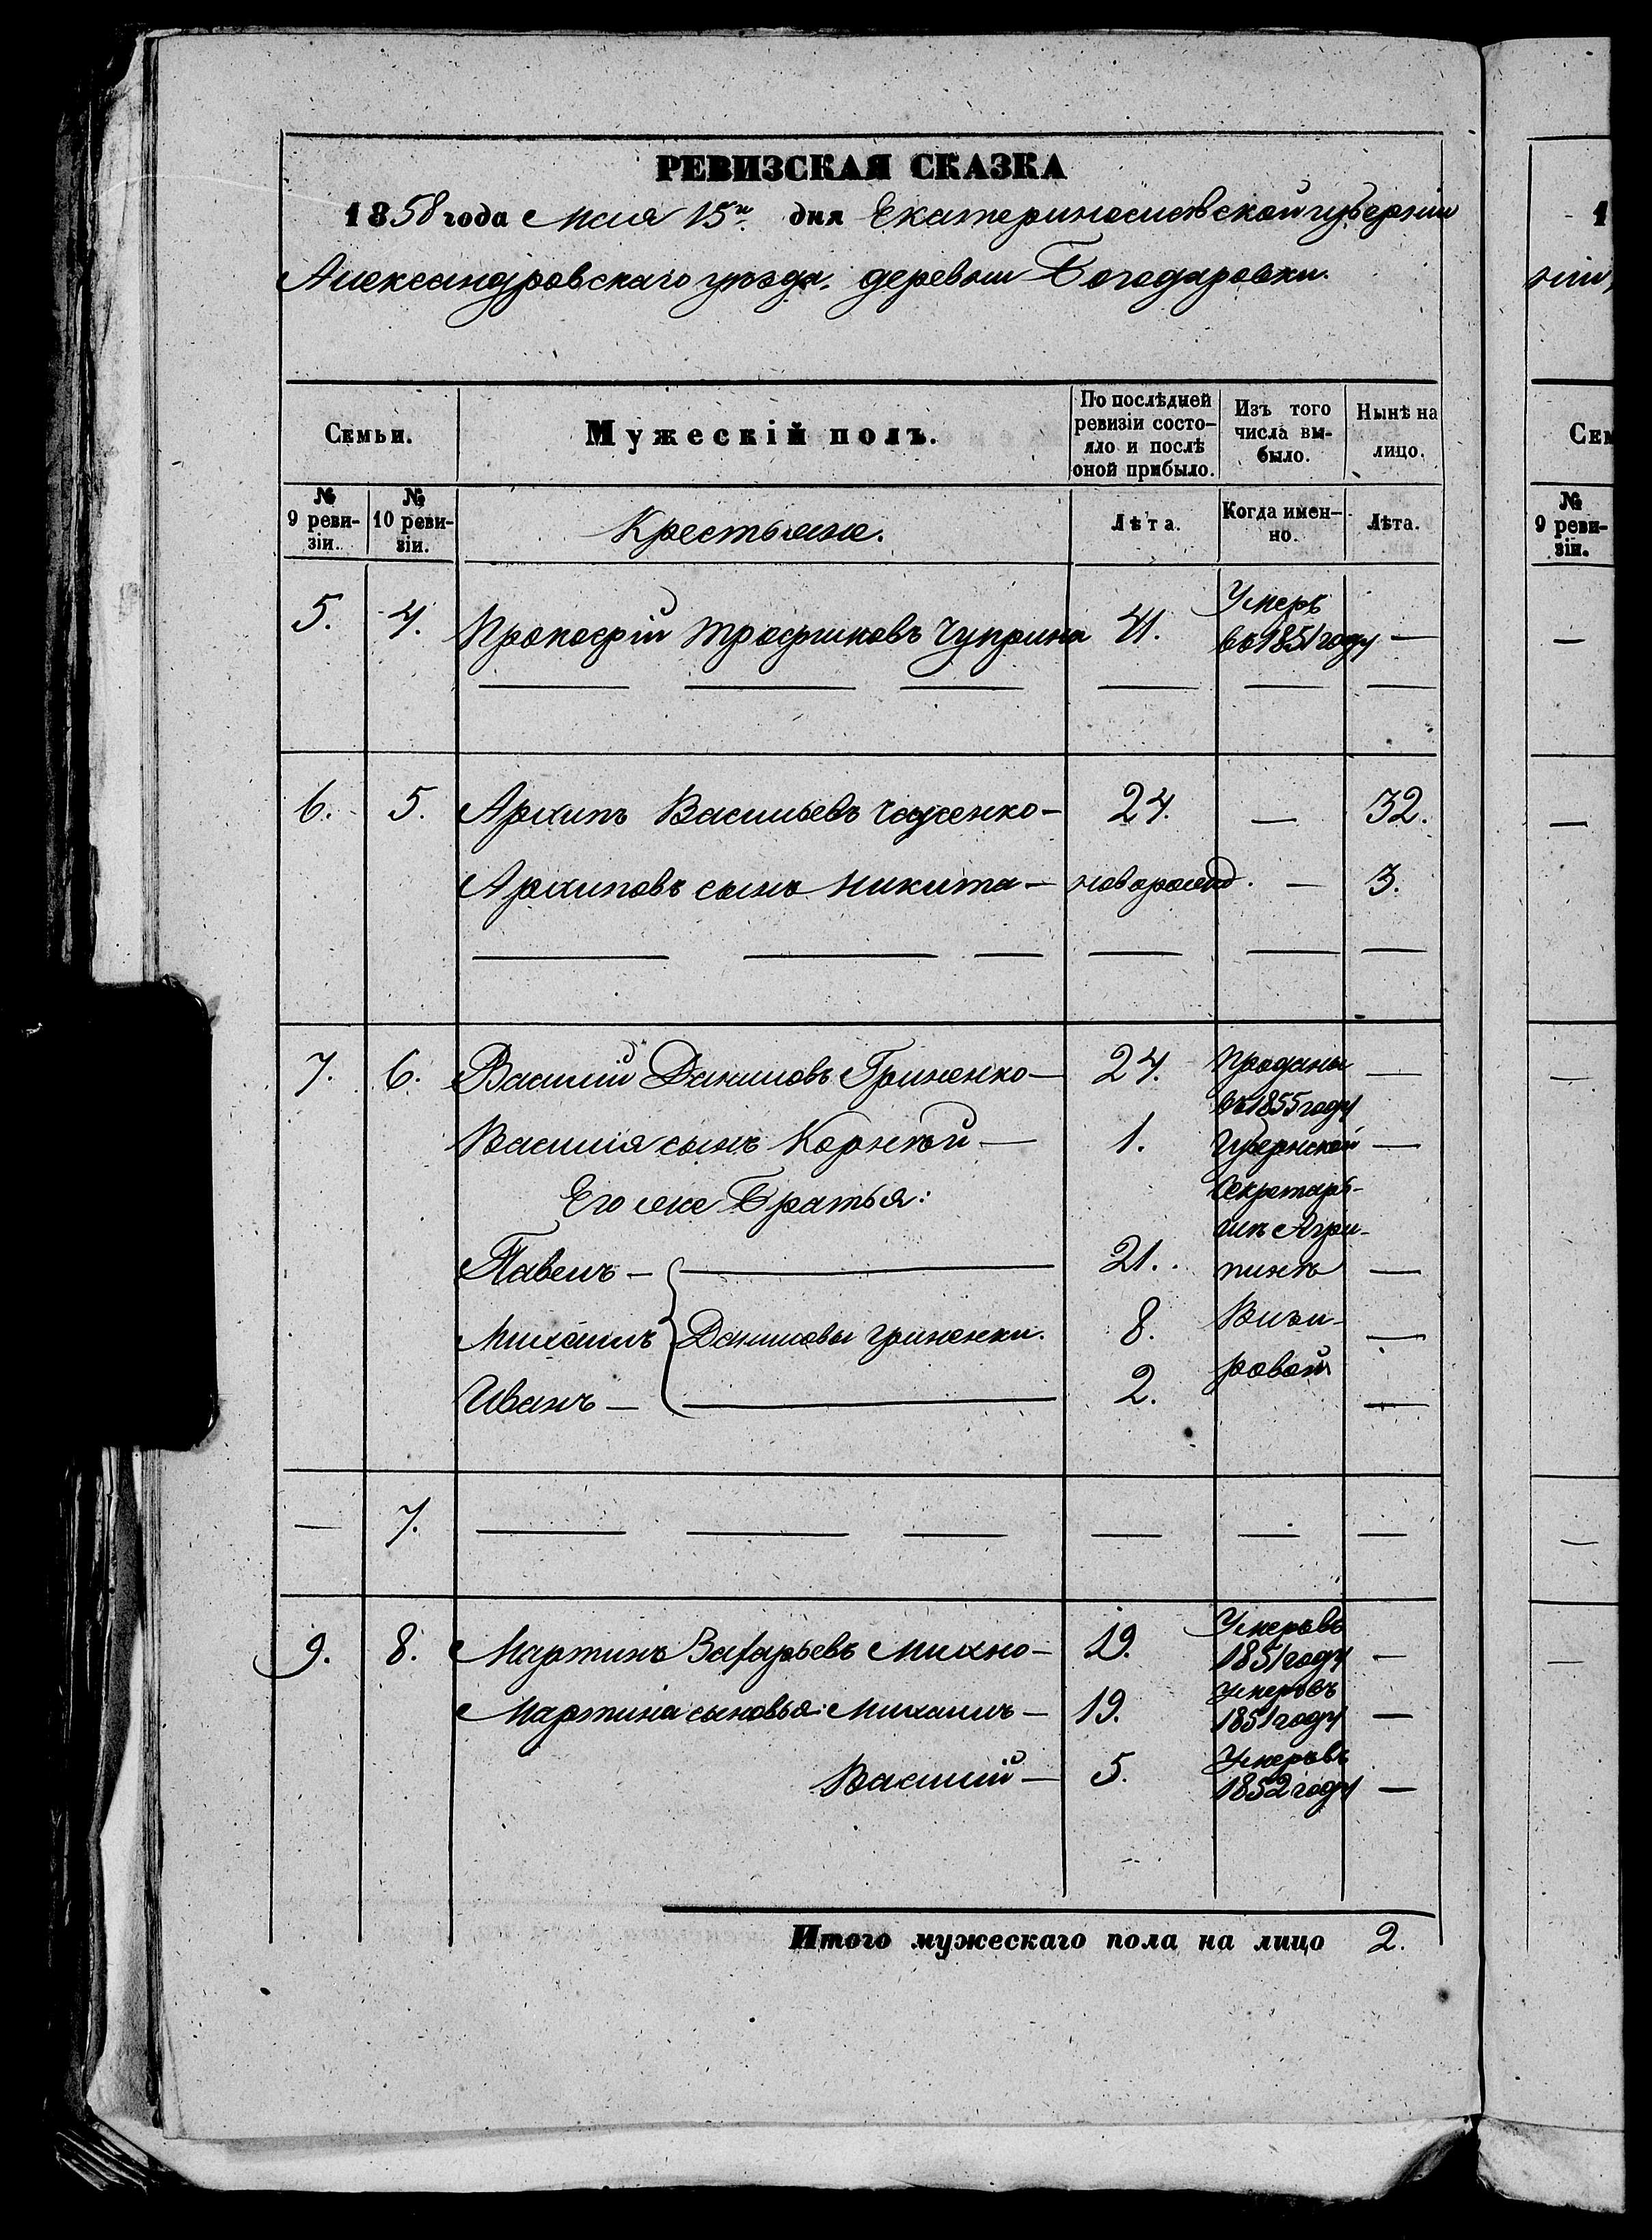 РЕВИЗСКАЯ СКАЗКА
1858 года Мая 15го дня Екатеринославской губерніи
Александровскаго уѣзда, деревни Богодаровки.
Семьи. Мужескій полъ. По послѣдней ревизіи состояло и послѣ оной прибыло. Изъ того числа выбыло. Нынѣ на лицо.
№ 9 ревизіи. № 10 ревизіи. Крестьяне. Лѣта. Когда именно. Лѣта.
5. 4. Прокофій Трофимовъ Чуприна 41. Умеръ въ 1851 году —
6. 5. Архипъ Васильевъ — 24. — 32.
Архиповъ сынъ Никита — новорожд. — 3.
7. 6. Василій Даниловъ Гриненко — 24. Проданы —
въ 1855 году
Василія сынъ Корнѣй — 1. Губернской —
Его же Братья: Секретарь-
шѣ Агри-
Павелъ — 21. пинѣ —
Михаилъ Даниловы Гриненки. 8. —
Иванъ — 2. ровой —
— 7. — — — — — —
9. 8. Мартинъ Захарьевъ Михно — 19. Умеръ въ 1851 году —
Мартина сыновья: Михаилъ — 19. Умеръ въ 1851 году —
Василій — 5. Умеръ въ 1852 году —
Итого мужескаго пола на лицо 2.
1
ніи,
Сем
№ 9 ревизіи.